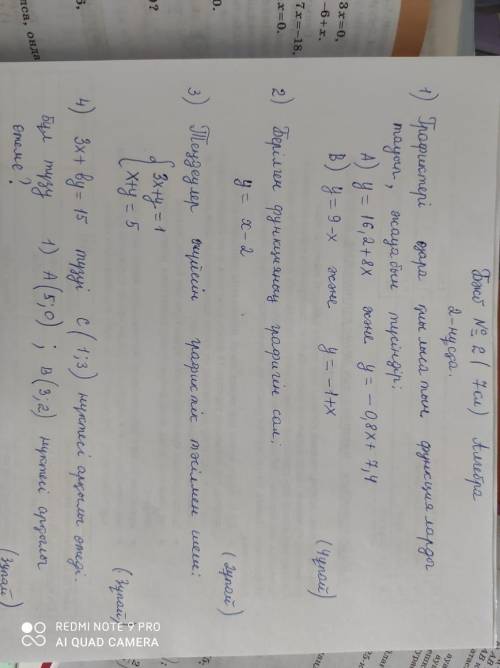 Бжб № 2 ( 7 кл ) Алгебра
2-нұсқа.
1) Графиктері өзара қиылысатын функцияларды
тауып, жауабын түсіндір:
А) y = 16,2+8x және y = -0,8x+7,4
В) y = 9-x және y = -1+x
(4 ұпай)
2) Берілген функцияның графигін сал:
y = x-2
(2 ұпай)
3) Теңдеулер жүйесін графиктік тәсілмен шеш:
3x+y=1
x+y=5
(3 ұпай)
4) 3x+by=15 түзуі C(1;3) нүктесі арқылы өтеді.
Бұл түзу 1) A(5;0); B(3;2) нүктесі арқылы
өтеме?
(3 ұпай)
3x=0,
-6+x.
7x=-18,
x=0.
REDMI NOTE 9 PRO
AI QUAD CAMERA